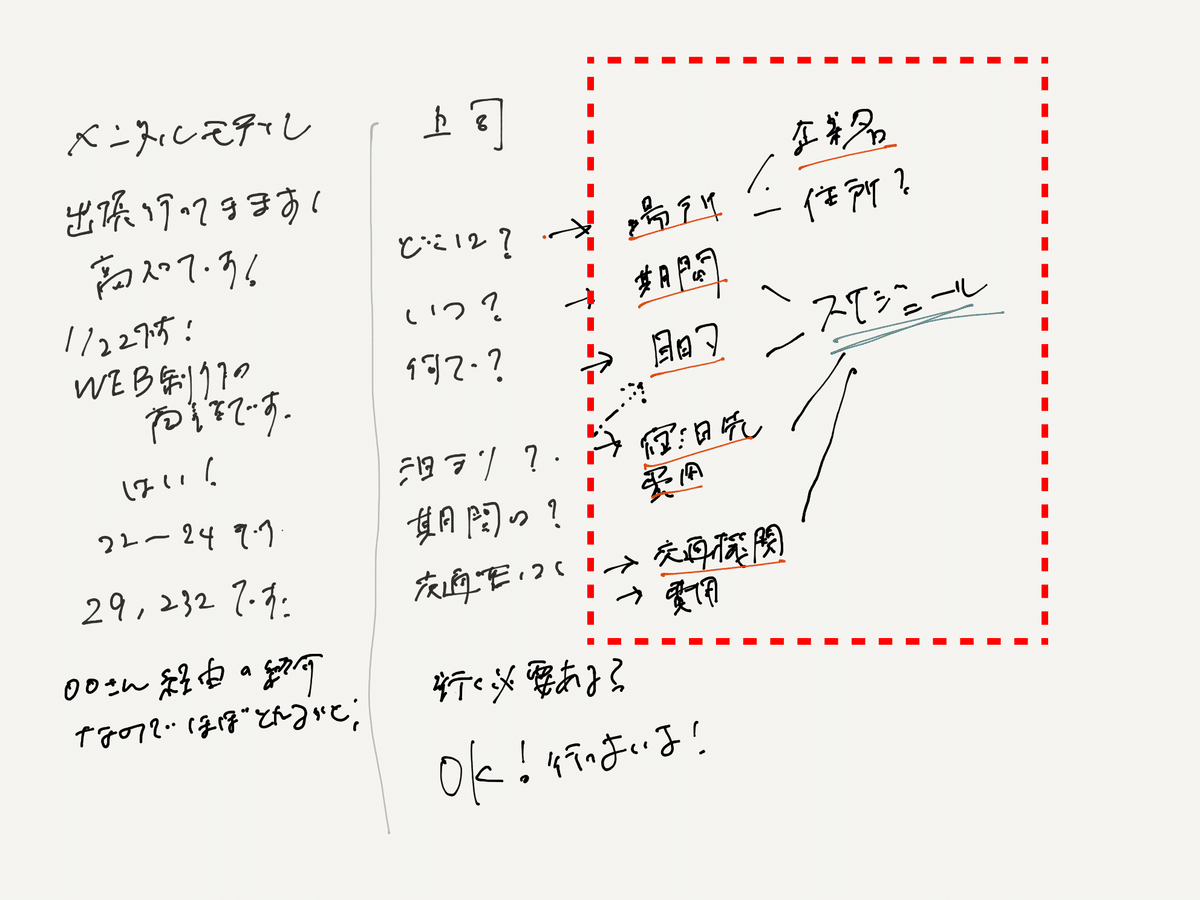 メンタルモデル
出張行ってきます!
高知です!
1/22です!
WEB制作の
商談です.
はい!
22-24です.
29,232です.
〇〇さん経由の紹介
なので ほぼとれるかと;
上司
どこに?
いつ?
何で?
泊まり?
期間は?
交通宅にく
行く必要ある?
OK!行ってよいよ!
→ 場所
企業名
住所?
→ 期間
→ 目的
スケジュール
→ 宿泊先
費用
→ 交通機関
→ 費用